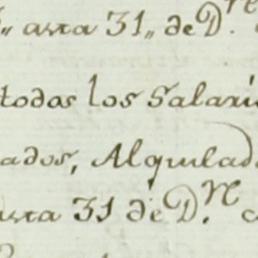 asta 31,, de D.re
todos los Salari
ados, Alquilad
asta 31 de D.re